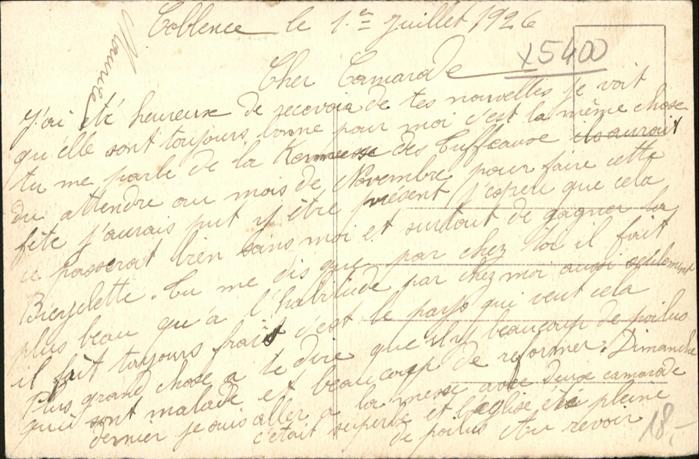 Coblence le 1er Juillet 1926
x5400
Cher Camarade
J'ai été heureux de recevoir de tes nouvelles je voit
qu'elle sont toujours bonne pour moi c'est la même chose
tu me parle de la Kermesse des Buffeaux ils aurait
du attendre au mois de Novembre pour faire cette
fête j'aurais put y être présent j'espère que cela
ce passerat bien sans moi et surtout de gagner la
Bicyclette. Tu me dis que par chez toi il fait
plus beau qu'a l'habitude par chez moi aussi seulement
il fait toujours frais c'est le pays qui veut cela
Plus grand chose a te dire que il y a beaucoup de poilus
qui sont malade et beaucoup de reformer. Dimanche
dernier je suis aller a la messe avec deux camarade
c'était superbe et l'église était pleine
de poilus Au revoir
Maurice
18,-